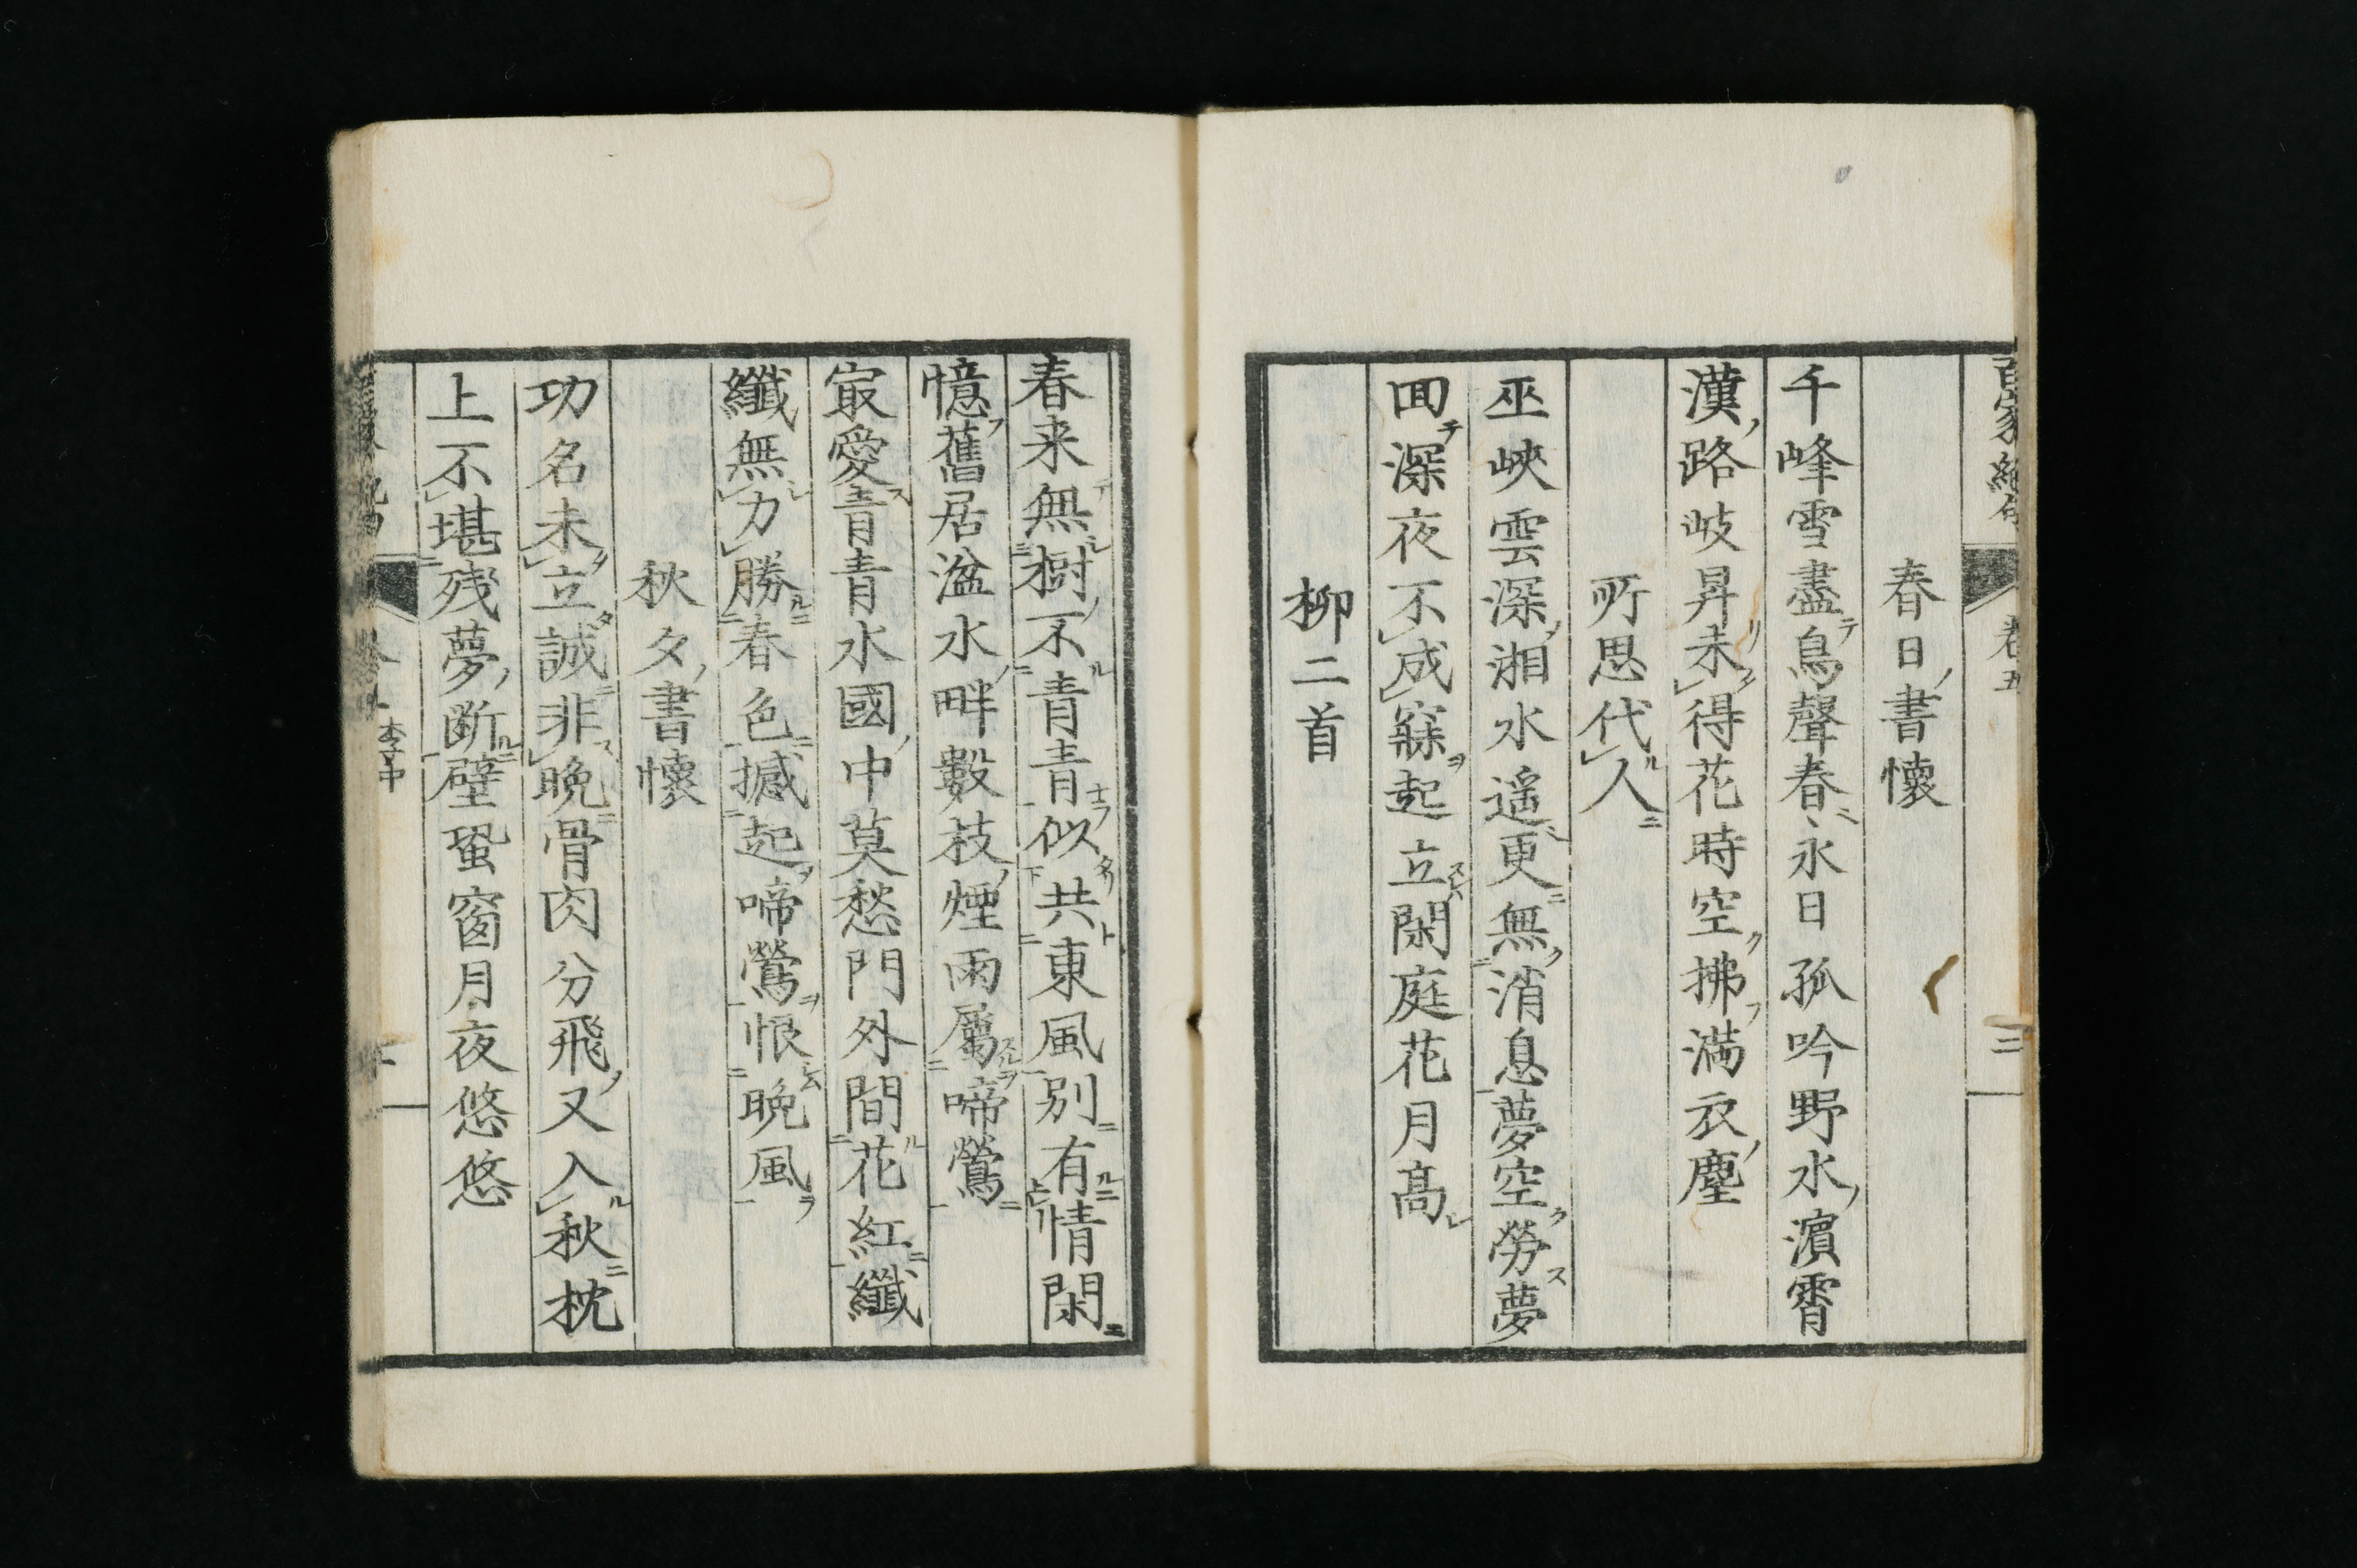 百家絶句
卷五
三
春日書懷
千峰雪盡鳥聲春永日孤吟野水濵霄
漢路岐昇未得花時空拂滿衣塵
所思代人
巫峽雲深湘水遙更無消息夢空勞夢
囬深夜不成寐起立閑庭花月髙
柳二首
春来無樹不青青似共東風別有情閑
憶舊居湓水畔數枝煙雨屬啼鶯
冣愛青青水國中莫愁門外間花紅纖
纖無力勝春色撼起啼鶯恨晩風
秋夕書懷
功名未立誠非晩骨肉分飛又入秋枕
上不堪殘夢斷壁蛩窗月夜悠悠
李中